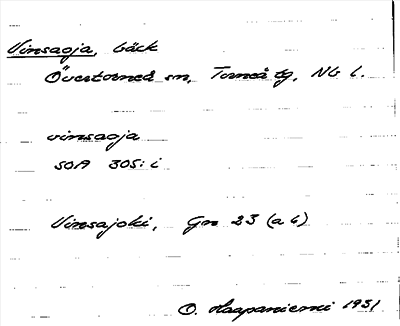 Vinsaoja, bäck
Övertorneå sn, Torneå tg, Nb l.
vinsaoja
SOA 305: i
Vinsajoki, Gn 23 (a 6)
O. Haapaniemi 1931